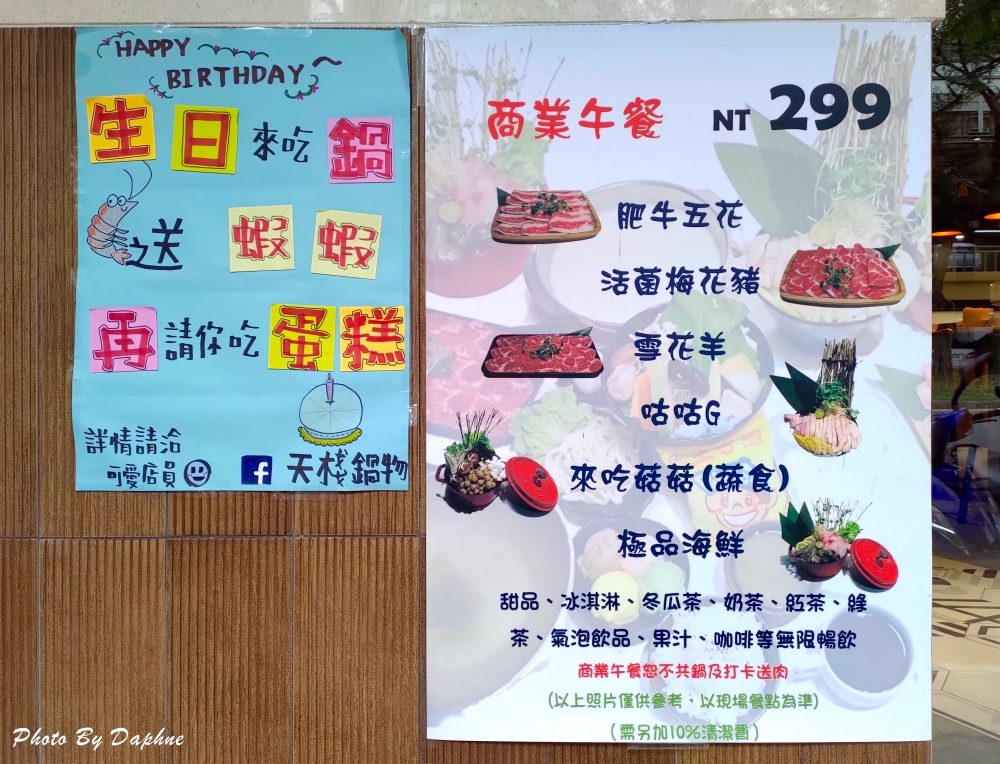 HAPPY
BIRTHDAY
生日來吃鍋
之送蝦蝦
再請你吃蛋糕
詳情請洽
可愛店員
f 天棧鍋物
商業午餐 NT 299
肥牛五花
活菌梅花豬
雪花羊
咕咕G
來吃菇菇(蔬食)
極品海鮮
甜品、冰淇淋、冬瓜茶、奶茶、紅茶、綠
茶、氣泡飲品、果汁、咖啡等無限暢飲
商業午餐恕不共鍋及打卡送肉
(以上照片僅供參考，以現場餐點為準)
(需另加10%清潔費)
Photo By Daphne